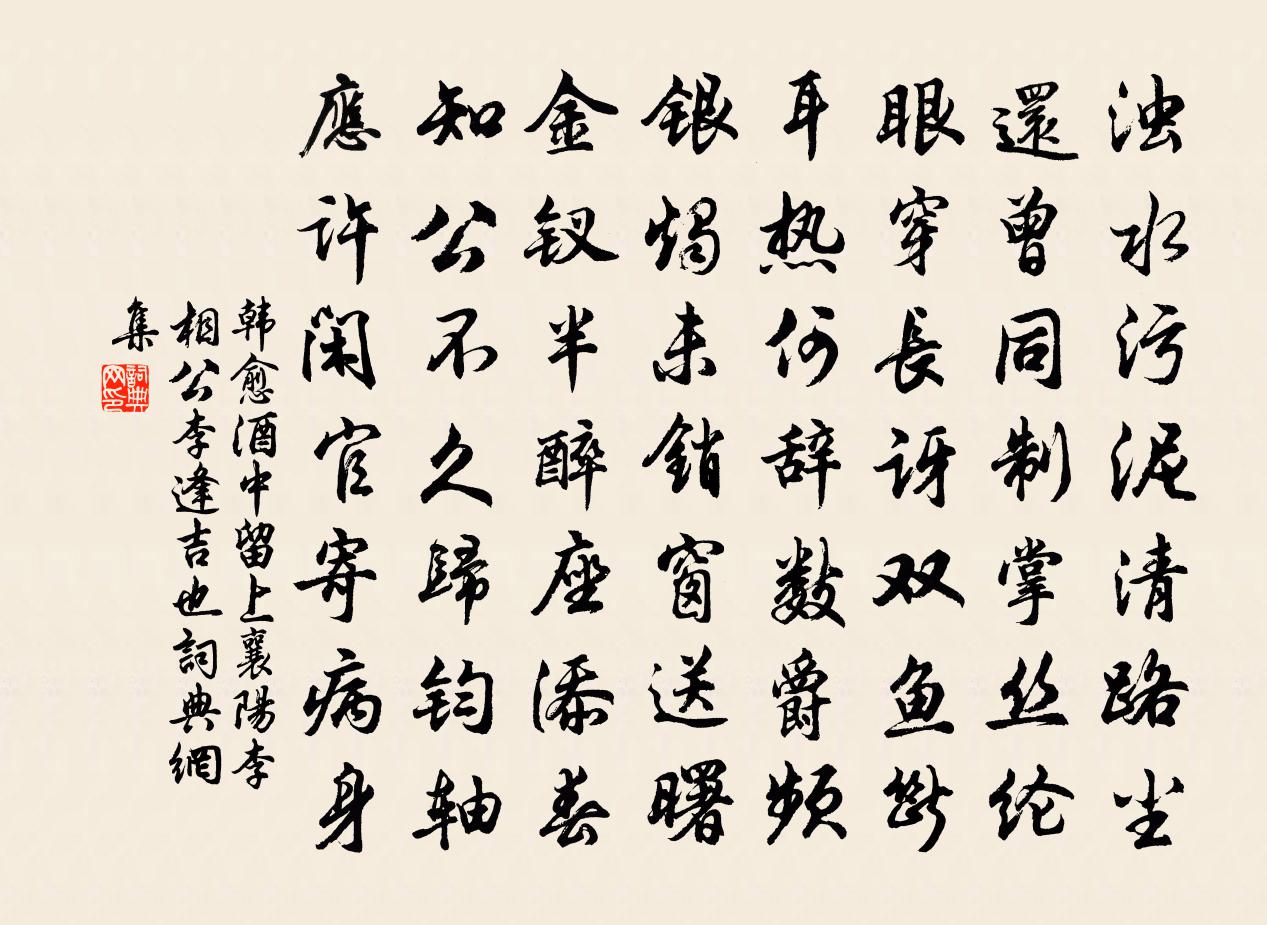 浊水污泥清路尘
還曾同制掌丝纶
眼穿長讶双鱼断
耳热何辞数爵频
銀烛未銷窗送曙
金钗半醉座添春
知公不久歸钧轴
應许闲官寄病身
韩愈酒中留上襄陽李
相公李逢吉也詞典網
集
詞典
网印